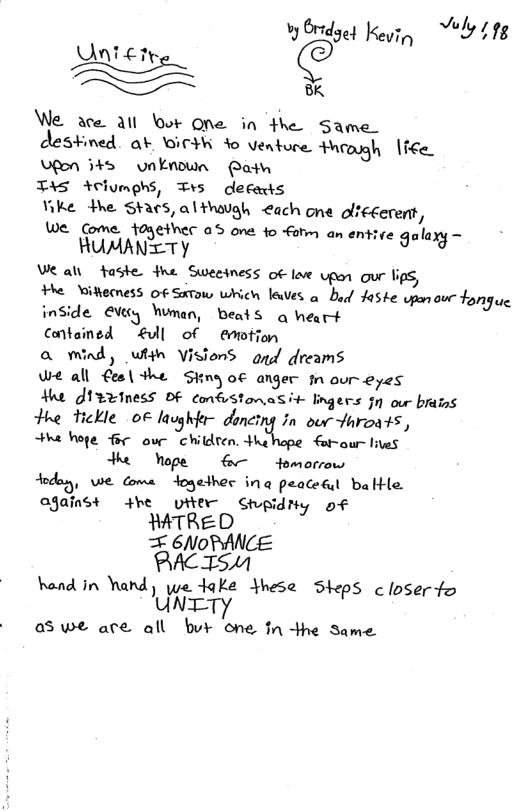 by Bridget Kevin
July 1, 98
Unifire
BK
We are all but one in the same
destined at birth to venture through life
upon its unknown path
Its triumphs, Its defeats
like the stars, although each one different,
We come together as one to form an entire galaxy-
HUMANITY
We all taste the sweetness of love upon our lips,
the bitterness of sorrow which leaves a bad taste upon our tongue
inside every human, beats a heart
contained full of emotion
a mind, with visions and dreams
we all feel the sting of anger in our eyes
the dizziness of confusion, as it lingers in our brains
the tickle of laughter dancing in our throats,
the hope for our children. the hope for our lives
the hope for tomorrow
today, we come together in a peaceful battle
against the utter stupidity of
HATRED
IGNORANCE
RACISM
hand in hand, we take these steps closer to
UNITY
as we are all but one in the same